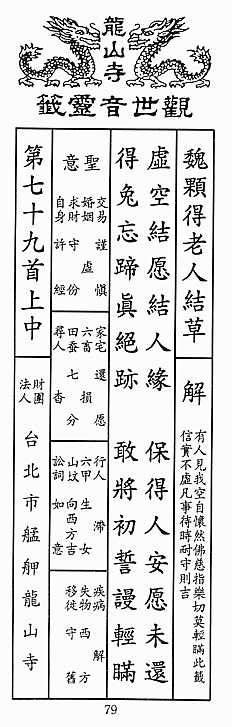 龍山寺
觀世音靈籤
魏顆得老人結草
解
有人見我空自懷然佛慈指樂切莫輕瞞此籤
信實不虛凡事待時耐守則吉
虛空結愿結人緣　保得人安愿未還
得兔忘蹄眞絕跡　敢將初誓謾輕瞞
聖意
交易　謹慎
婚姻　虛
求財　守份
自身　許經
家宅　還愿
六畜　損
田蚕　七分
尋人　杳
行人　滯
六甲　生女
山坟　向西方吉
訟詞　如意
疾病　解
失物　西方
移徙　守舊
第七十九首上中
財團
法人
台北市艋舺龍山寺
79